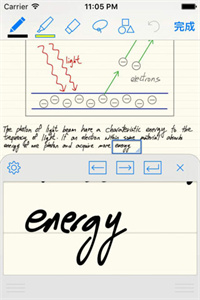 Carrier 11:05 PM
完成
light
electrons
The photon of light beam have a characteristic energy to the
frequency of light. If an electron within some material absorbs
energy of one photon and acquire more energy
energy